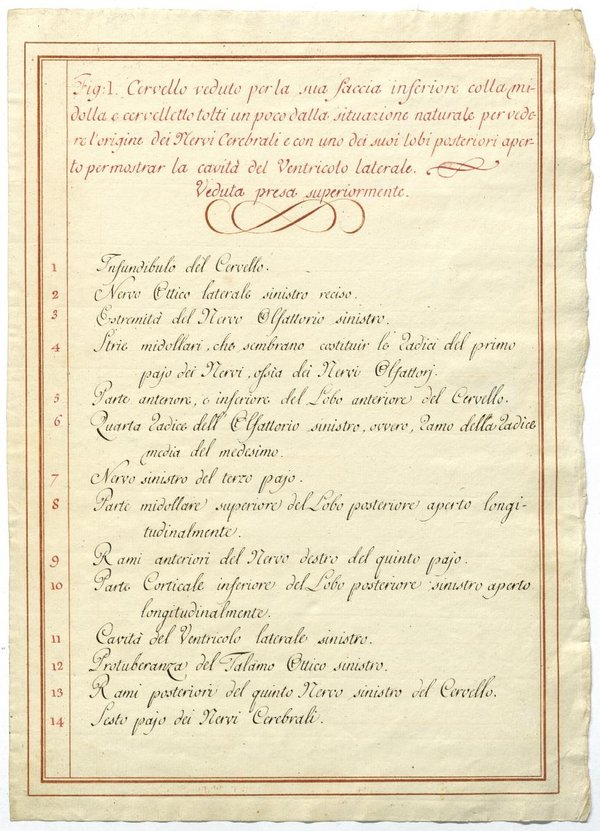 Fig: 1. Cervello veduto per la sua faccia inferiore colla mi-
dolla e cervelletto tolti un poco dalla situazione naturale per vede-
re l'origine dei Nervi Cerebrali e con uno dei suoi lobi posteriori aper-
to per mostrar la cavità del Ventricolo laterale.
Veduta presa superiormente.
1 Infundibulo del Cervello.
2 Nervo Ottico laterale sinistro reciso.
3 Estremità del Nervo Olfattorio sinistro.
4 Strie midollari, che sembrano costituir le Radici del primo
pajo dei Nervi, ossia dei Nervi Olfattorj.
5 Parte anteriore, e inferiore del Lobo anteriore del Cervello.
6 Quarta Radice dell'Olfattorio sinistro, ovvero, Ramo della Radice
media del medesimo.
7 Nervo sinistro del terzo pajo.
8 Parte midollare superiore del Lobo posteriore aperto longi-
tudinalmente.
9 Rami anteriori del Nervo destro del quinto pajo.
10 Parte Corticale inferiore del Lobo posteriore sinistro aperto
longitudinalmente.
11 Cavità del Ventricolo laterale sinistro.
12 Protuberanza del Talamo Ottico sinistro.
13 Rami posteriori del quinto Nervo sinistro del Cervello.
14 Sesto pajo dei Nervi Cerebrali.